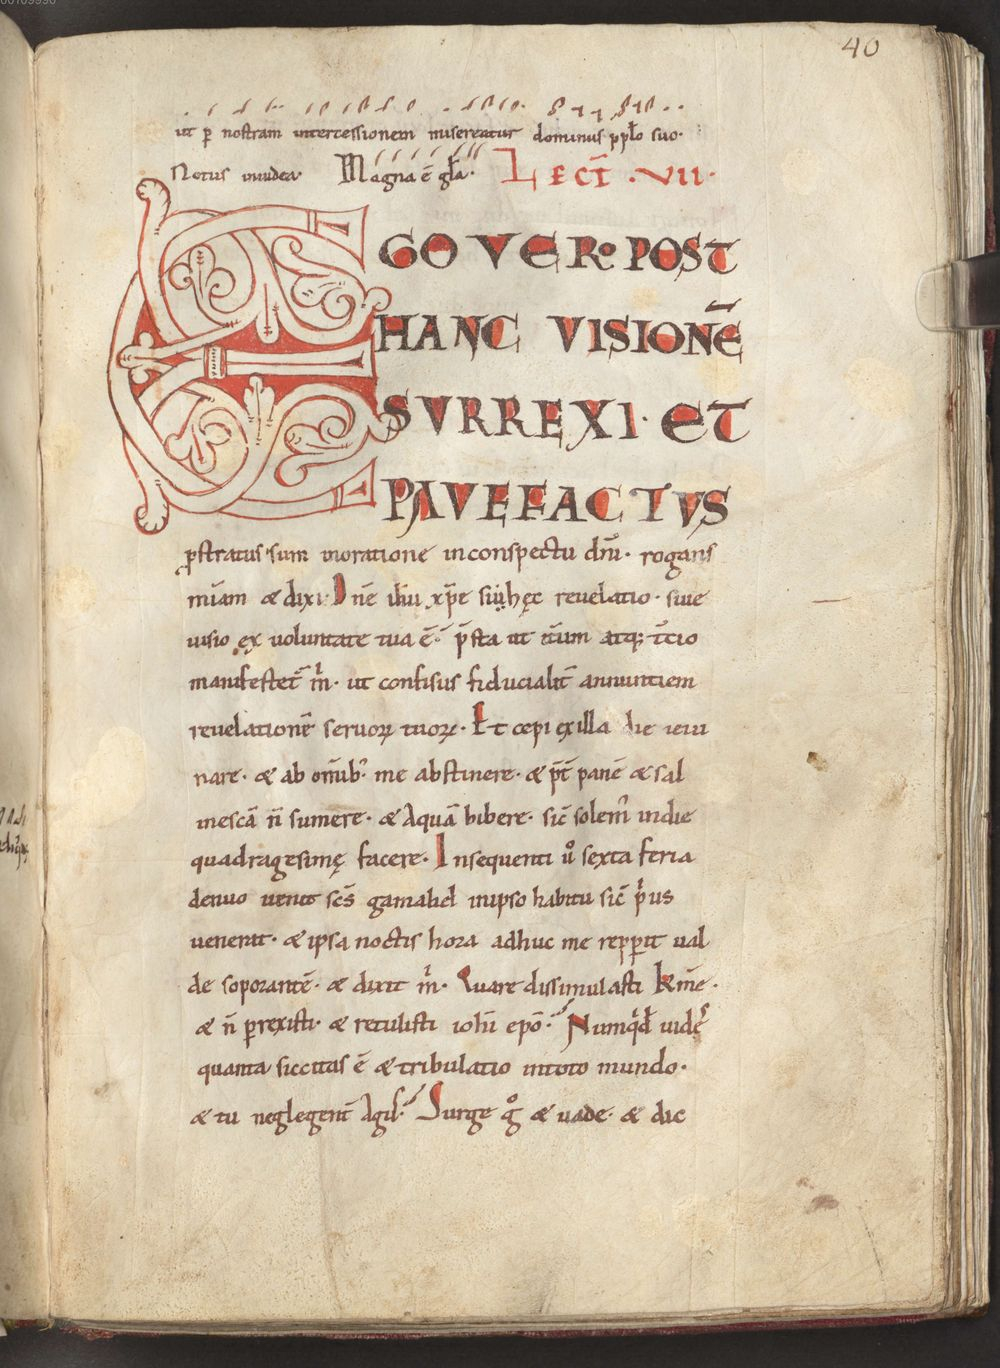 40
ut p̄ nostram intercessionem misereatur dominus ppło suo·
Notus in iudea· Magna ē gła· LECT̄ ·VII·
EGO VERO POST
HANC VISIONĒ
SURREXI· ET
PAVEFACTUS
ꝓstratus sum in oratione in conspectu dn̄i· rogans
mīam & dixi· Dn̄e ih̄u xp̄e si hęc reuelatio· siue
uisio ex uoluntate tua ē· p̄sta ut itm̄ atq; t̄cio
manifestet̄ m̄· ut confisus fiducialit̄ annuntiem
reuelationē seruoꝝ tuoꝝ· Et cepi ex illa die ieiu
nare· & ab om̄ib; me abstinere· & p̄t̄ panē & sal
in escā n̄ sumere· & Aquā bibere· sic̄ solem̄ in die
quadragesimę facere· Insequenti ů sexta feria
denuo uenit sc̄s gamaliel in ipso habitu sic̄ p̍us
uenerat· & ipsa noctis hora adhuc me repꝑit ual
de soporantē· & dixit m̍· Quare dissimulasti kr̄me·
& n̄ ꝑrexisti· & retulisti ioh̄i ep̄o· Numqd̄ uides
quanta siccitas ē & tribulatio in toto mundo·
& tu neglegent̄ Agis· Surge g̊ & uade· & dic